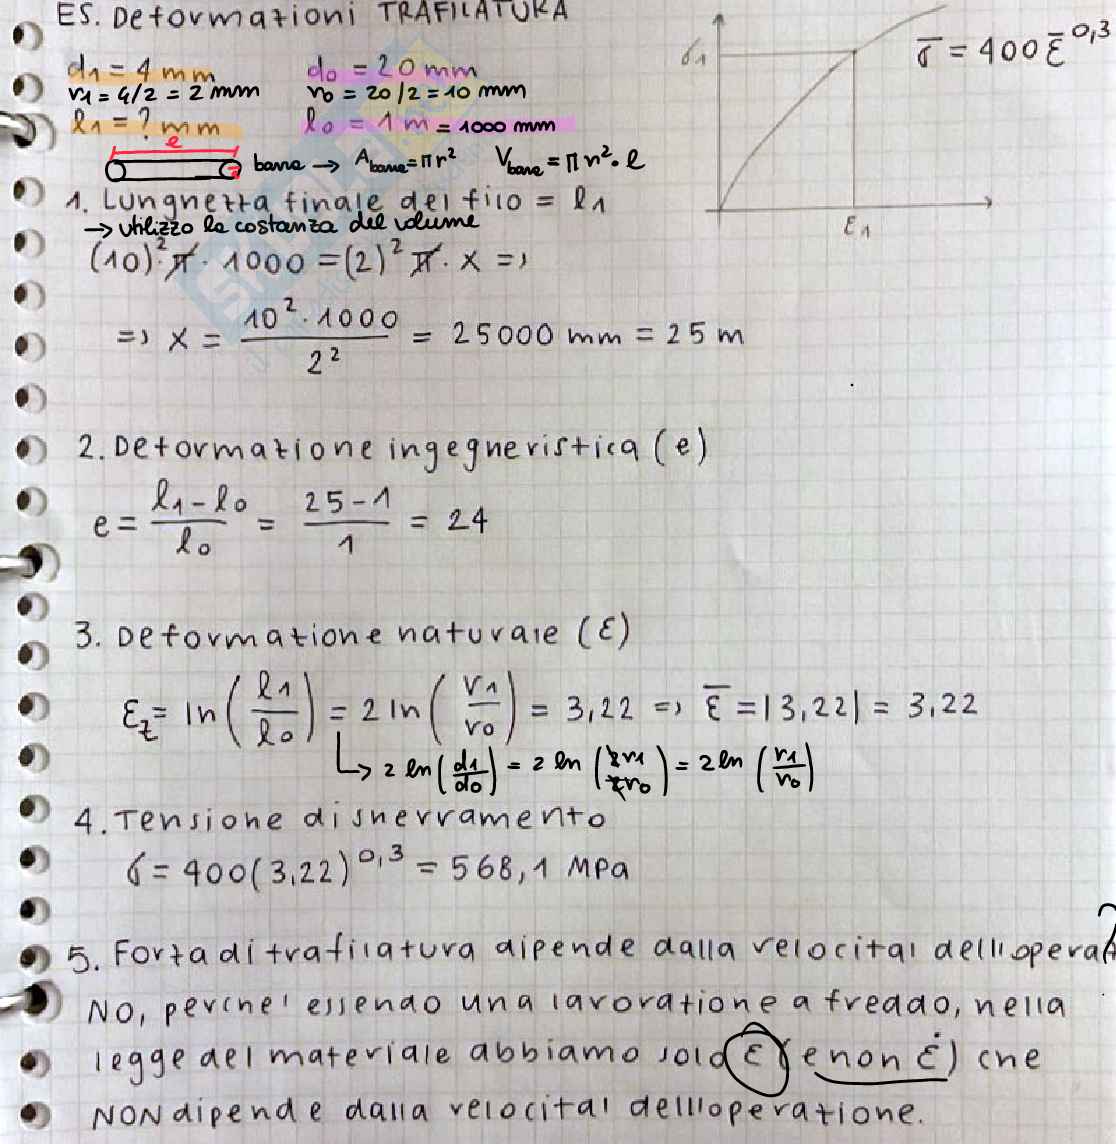 ES. Deformazioni TRAFILATURA
d1 = 4 mm d0 = 20 mm
r1 = 4/2 = 2 mm r0 = 20/2 = 10 mm
l1 = ? mm l0 = 1 m = 1000 mm
l
barra → Abarra = πr² Vbarra = πr²·l
σ1
σ̅ = 400 ε̅^0,3
ε1
1. Lunghezza finale del filo = l1
→ utilizzo la costanza del volume
(10)²·π · 1000 = (2)² π · x =>
=> x = 10²·1000 / 2² = 25000 mm = 25 m
2. Deformazione ingegneristica (e)
e = l1 - l0 / l0 = 25 - 1 / 1 = 24
3. Deformazione naturale (ε)
εz = ln(l1/l0) = 2 ln(r1/r0) = 3,22 => ε̅ = |3,22| = 3,22
↳ 2 ln(d1/d0) = 2 ln(2r1/2r0) = 2 ln(r1/r0)
4. Tensione di snervamento
σ = 400(3,22)^0,3 = 568,1 MPa
5. Forza di trafilatura dipende dalla velocita' dell'opera?
NO, perche' essendo una lavorazione a freddo, nella
legge del materiale abbiamo solo ε (e non ε̇) che
NON dipende dalla velocita' dell'operazione.